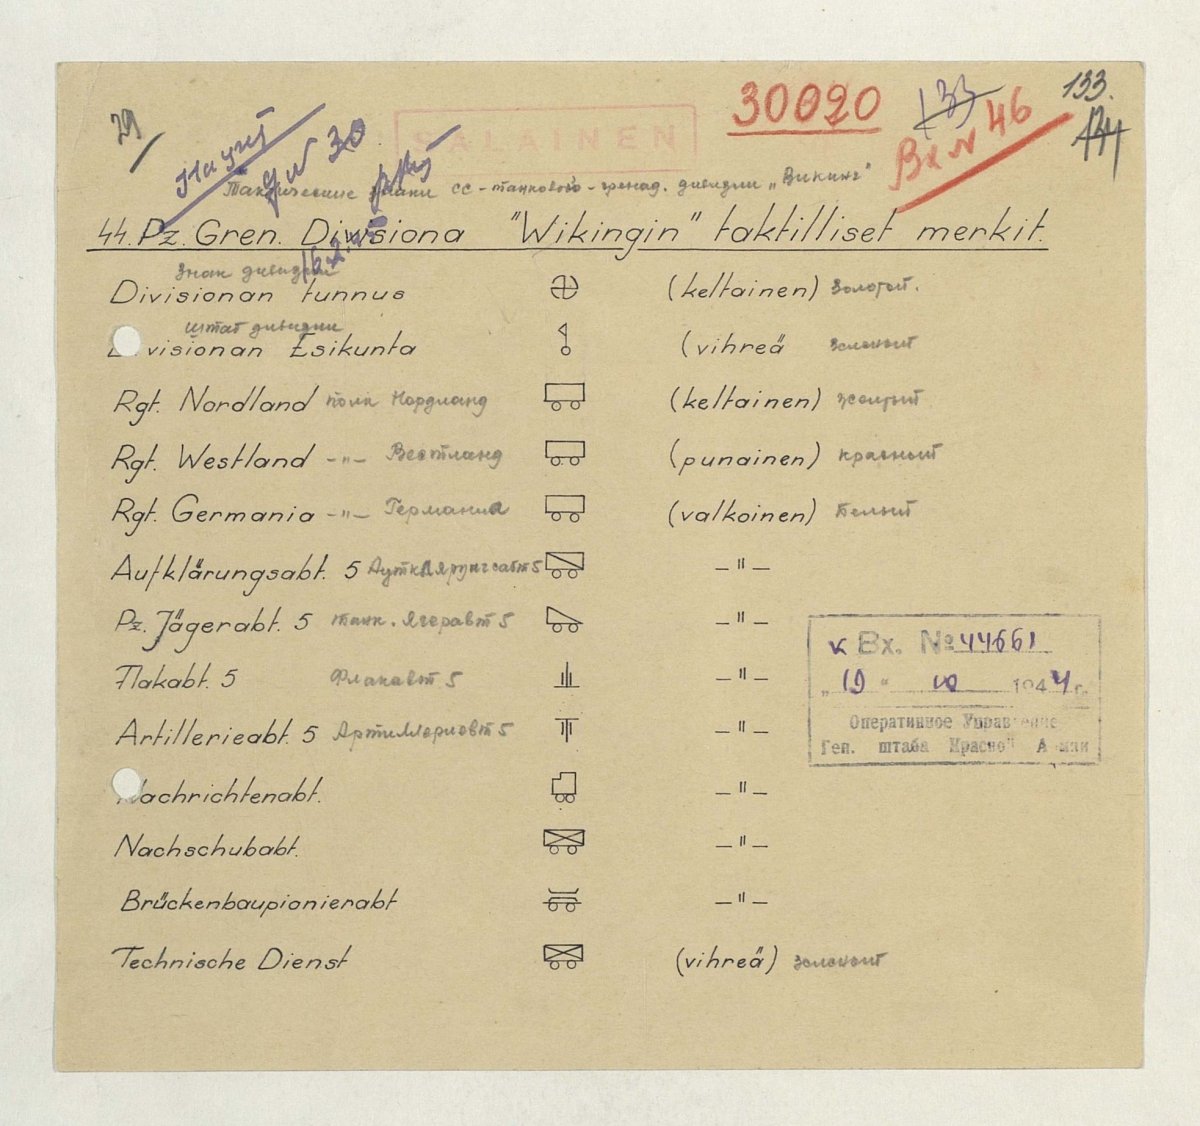 29
30020
133
133.
Вх N 46
SALAINEN
N 30
Тактические знаки СС-танкового-гренад. дивизии „Викинг"
44. Pz. Gren. Divisiona "Wikingin" taktilliset merkit.
Знак дивизии
Divisionan tunnus (keltainen) Золотой.
штаб дивизии
visionan Esikunta (vihreä зеленый
Rgt. Nordland полк Нордланд (keltainen) желтый
Rgt. Westland -"- Вестланд (punainen) красный
Rgt. Germania -"- Германиа (valkoinen) белый
Aufklärungsabt. 5 Ауфклярунгсабт 5 -"-
Pz. Jägerabt. 5 танк. Ягерабт 5 -"-
Flakabt. 5 Флакабт 5 -"-
Artillerieabt. 5 Артиллериабт 5 -"-
Nachrichtenabt. -"-
Nachschubabt. -"-
Brückenbaupionierabt -"-
Technische Dienst (vihreä) зеленый
к Вх. № 44661
"19" 1944 г.
Оперативное Управление
Ген. штаба Красной Армии